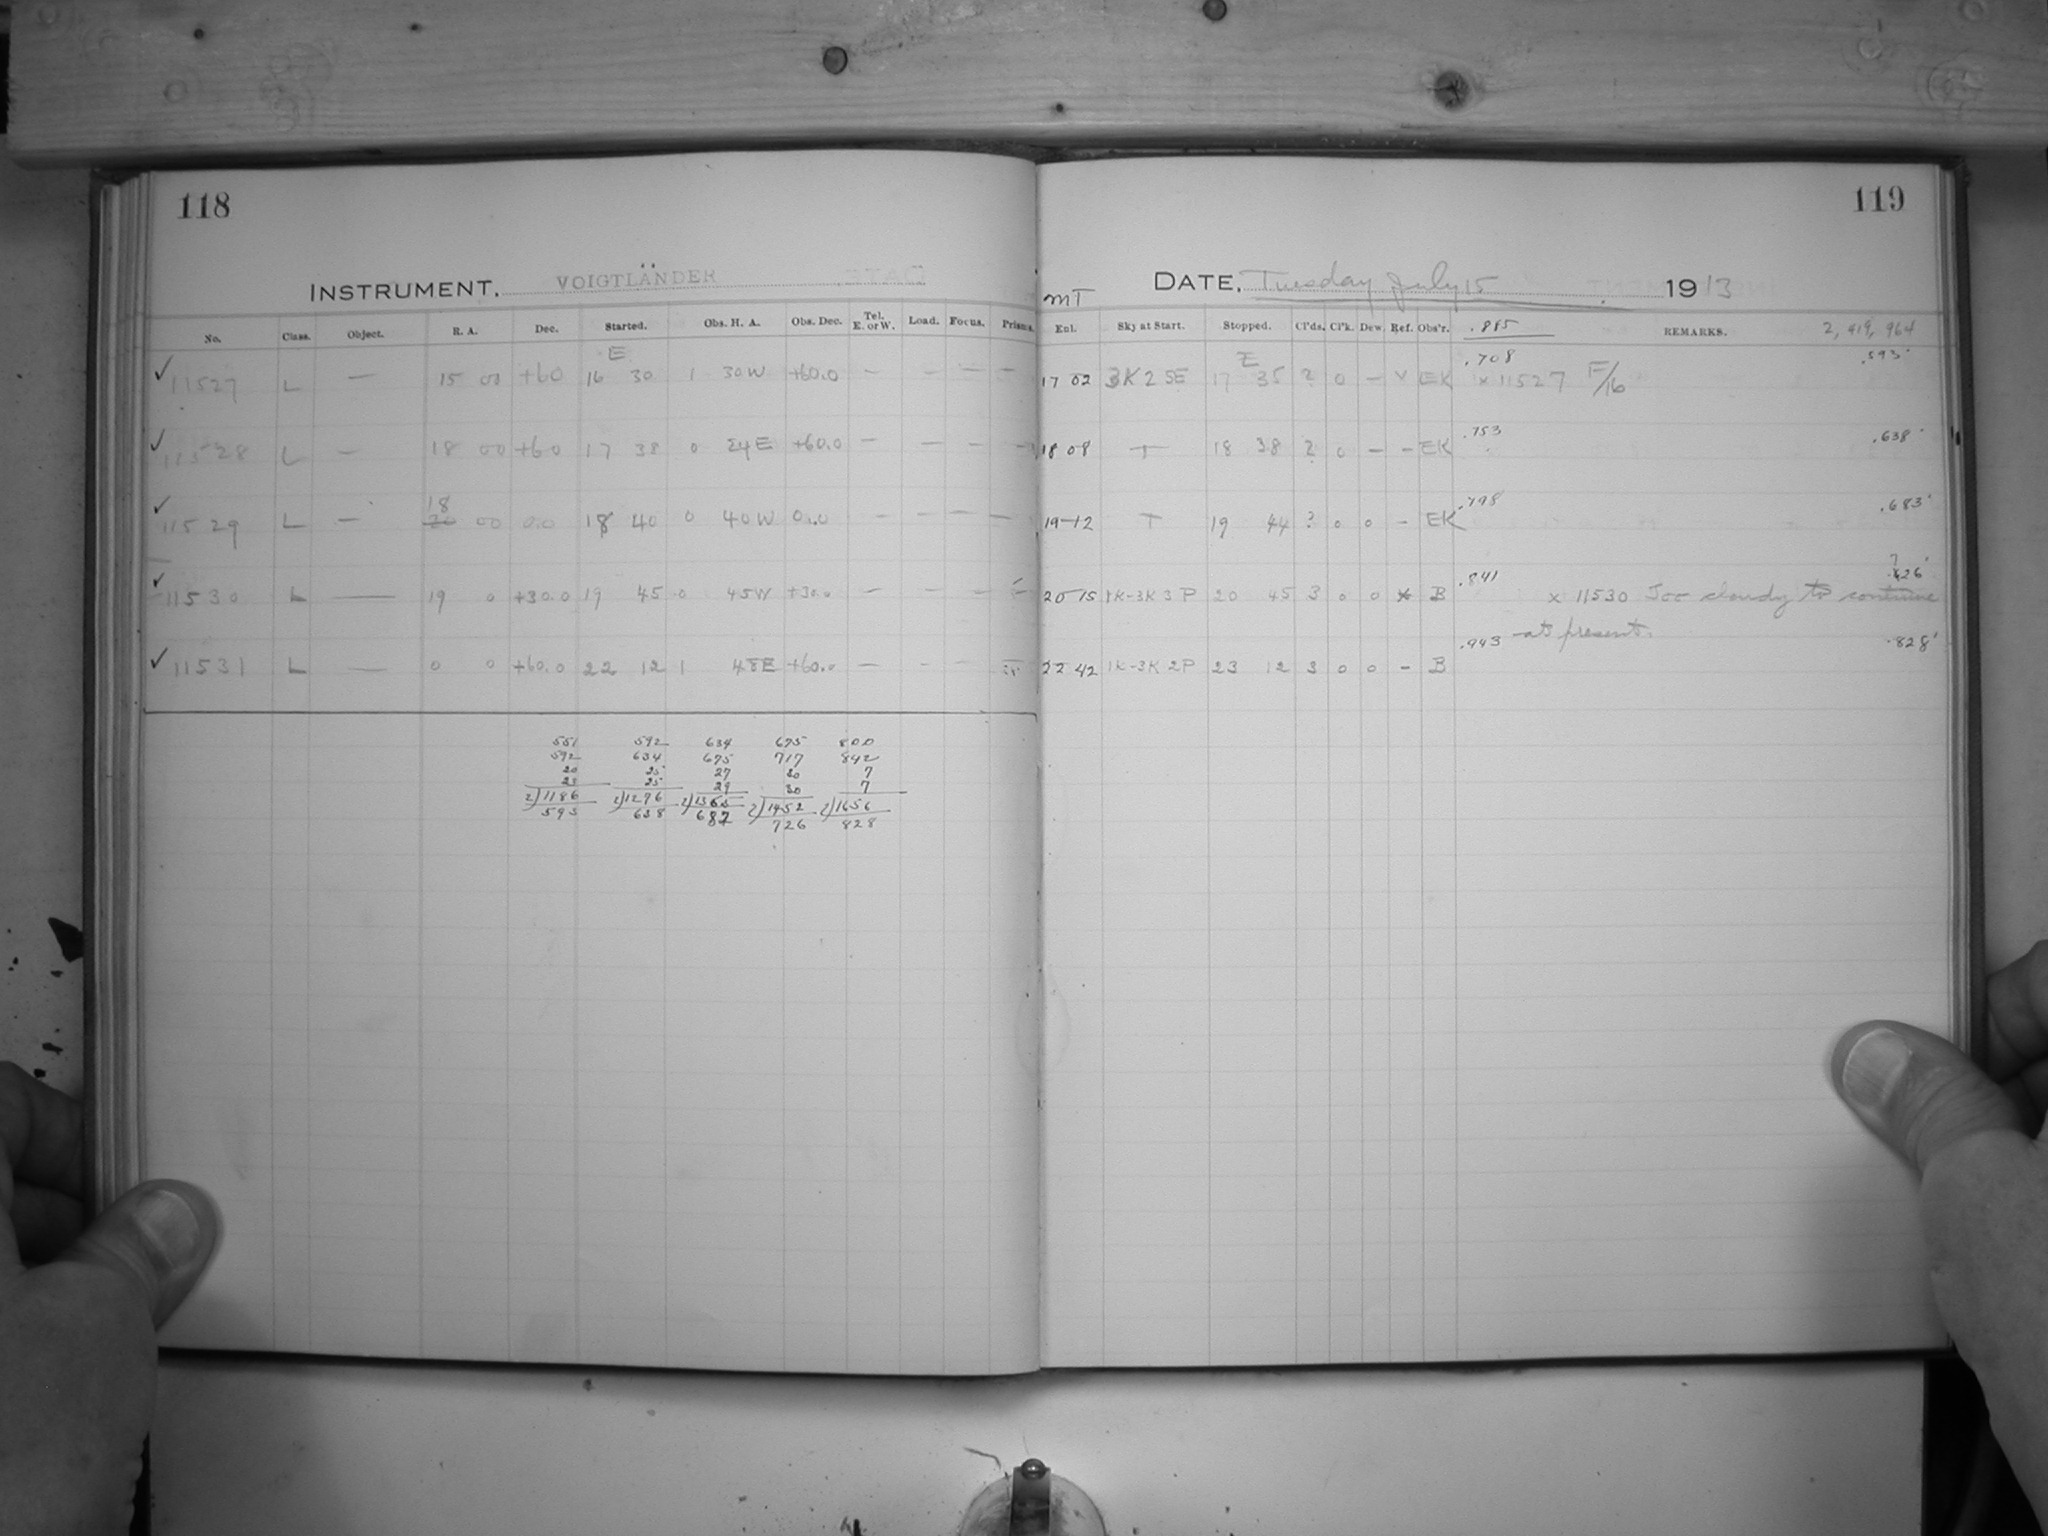 118
INSTRUMENT, VOIGTLÄNDER
No. Class. Object. R. A. Dec. Started. Obs. H. A. Obs. Dec. Tel. E. or W. Load. Focus. Prisms.
E
✓ 11527 L — 15 00 +60 16 30 1 30W +60.0 — — — —
✓ 11528 L — 18 00 +60 17 38 0 24E +60.0 — — — —
18
✓ 11529 L — 20 00 0.0 18 40 0 40W 0.0 — — — —
✓ 11530 L — 19 0 +30.0 19 45 0 45W +30.0 — — — —
✓ 11531 L — 0 0 +60.0 22 12 1 48E +60.0 — — —
551 592 634 675 800
592 634 675 717 842
20 25 27 30 7
23 25 29 30 7
2)1186 2)1276 2)1365 2)1452 2)1656
593 638 682 726 828
119
DATE, Tuesday July 15 1913
MT
Ext. Sky at Start. Stopped. Cl'ds. Cl'k. Dew. Ref. Obs'r. .885 REMARKS. 2,419,964
E .708 .593
17 02 3K 2 SE 17 35 ? 0 — x EK x 11527 F/16
.753 .638
18 08 T 18 38 ? 0 — - EK
.798 .683
19 12 T 19 44 ? 0 0 - EK
.841 7
.626
20 15 1K-3K 3 P 20 45 3 0 0 x B x 11530 Too cloudy to continue
at present.
.943 .828
22 42 1K-3K 2P 23 12 3 0 0 - B